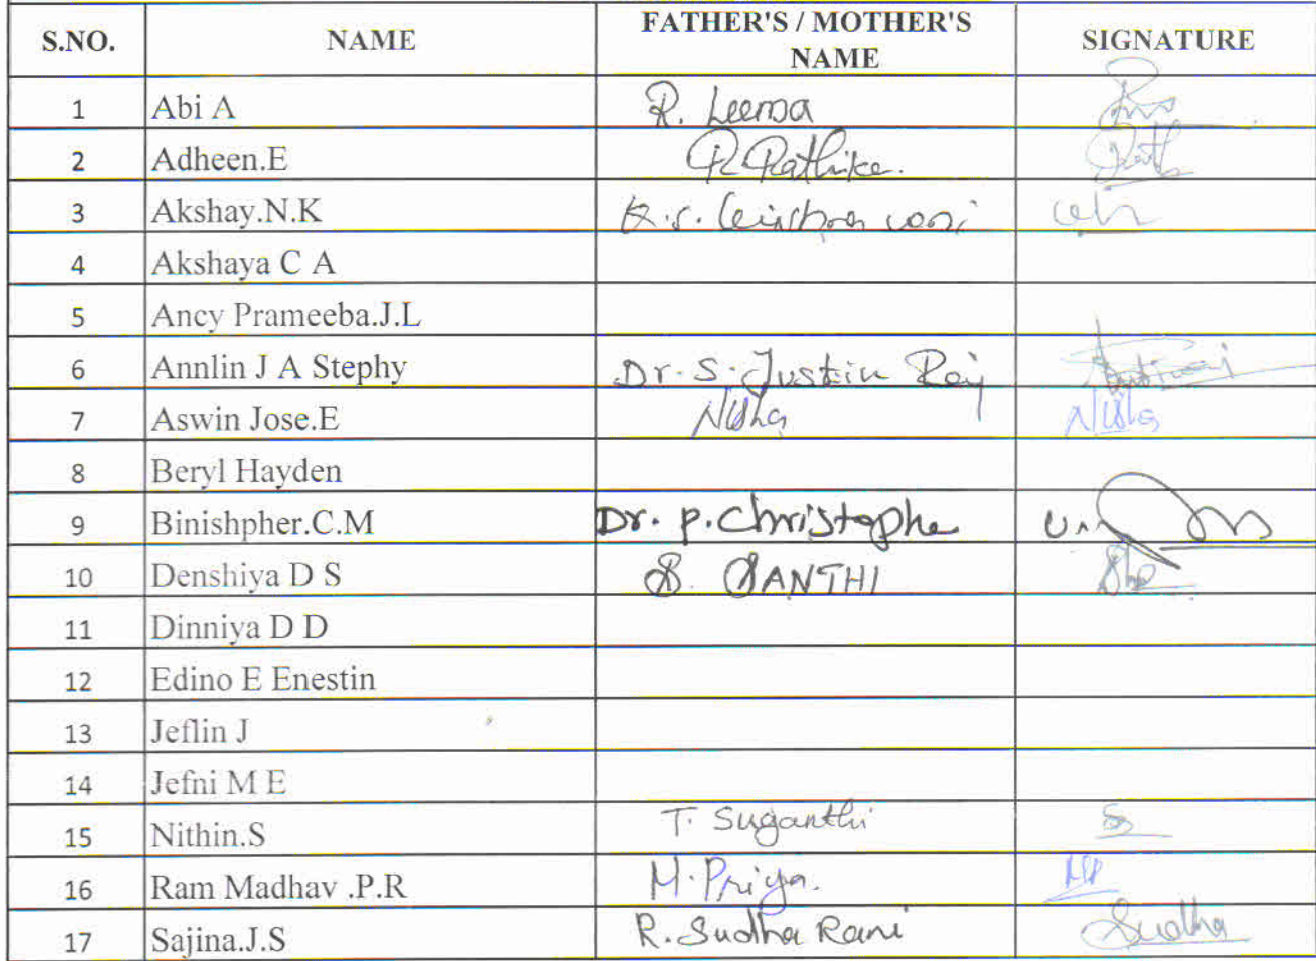 S.NO. NAME FATHER'S / MOTHER'S NAME SIGNATURE
1 Abi A R. Leema
2 Adheen.E R Rathika.
3 Akshay.N.K K.S.
4 Akshaya C A
5 Ancy Prameeba.J.L
6 Annlin J A Stephy Dr. S. Justin Raj
7 Aswin Jose.E Nisha Nisha
8 Beryl Hayden
9 Binishpher.C.M Dr. P. Christopher
10 Denshiya D S S. SANTHI
11 Dinniya D D
12 Edino E Enestin
13 Jeflin J
14 Jefni M E
15 Nithin.S T. Suganthi S
16 Ram Madhav .P.R M. Priya. MP
17 Sajina.J.S R. Sudha Rani Sudha